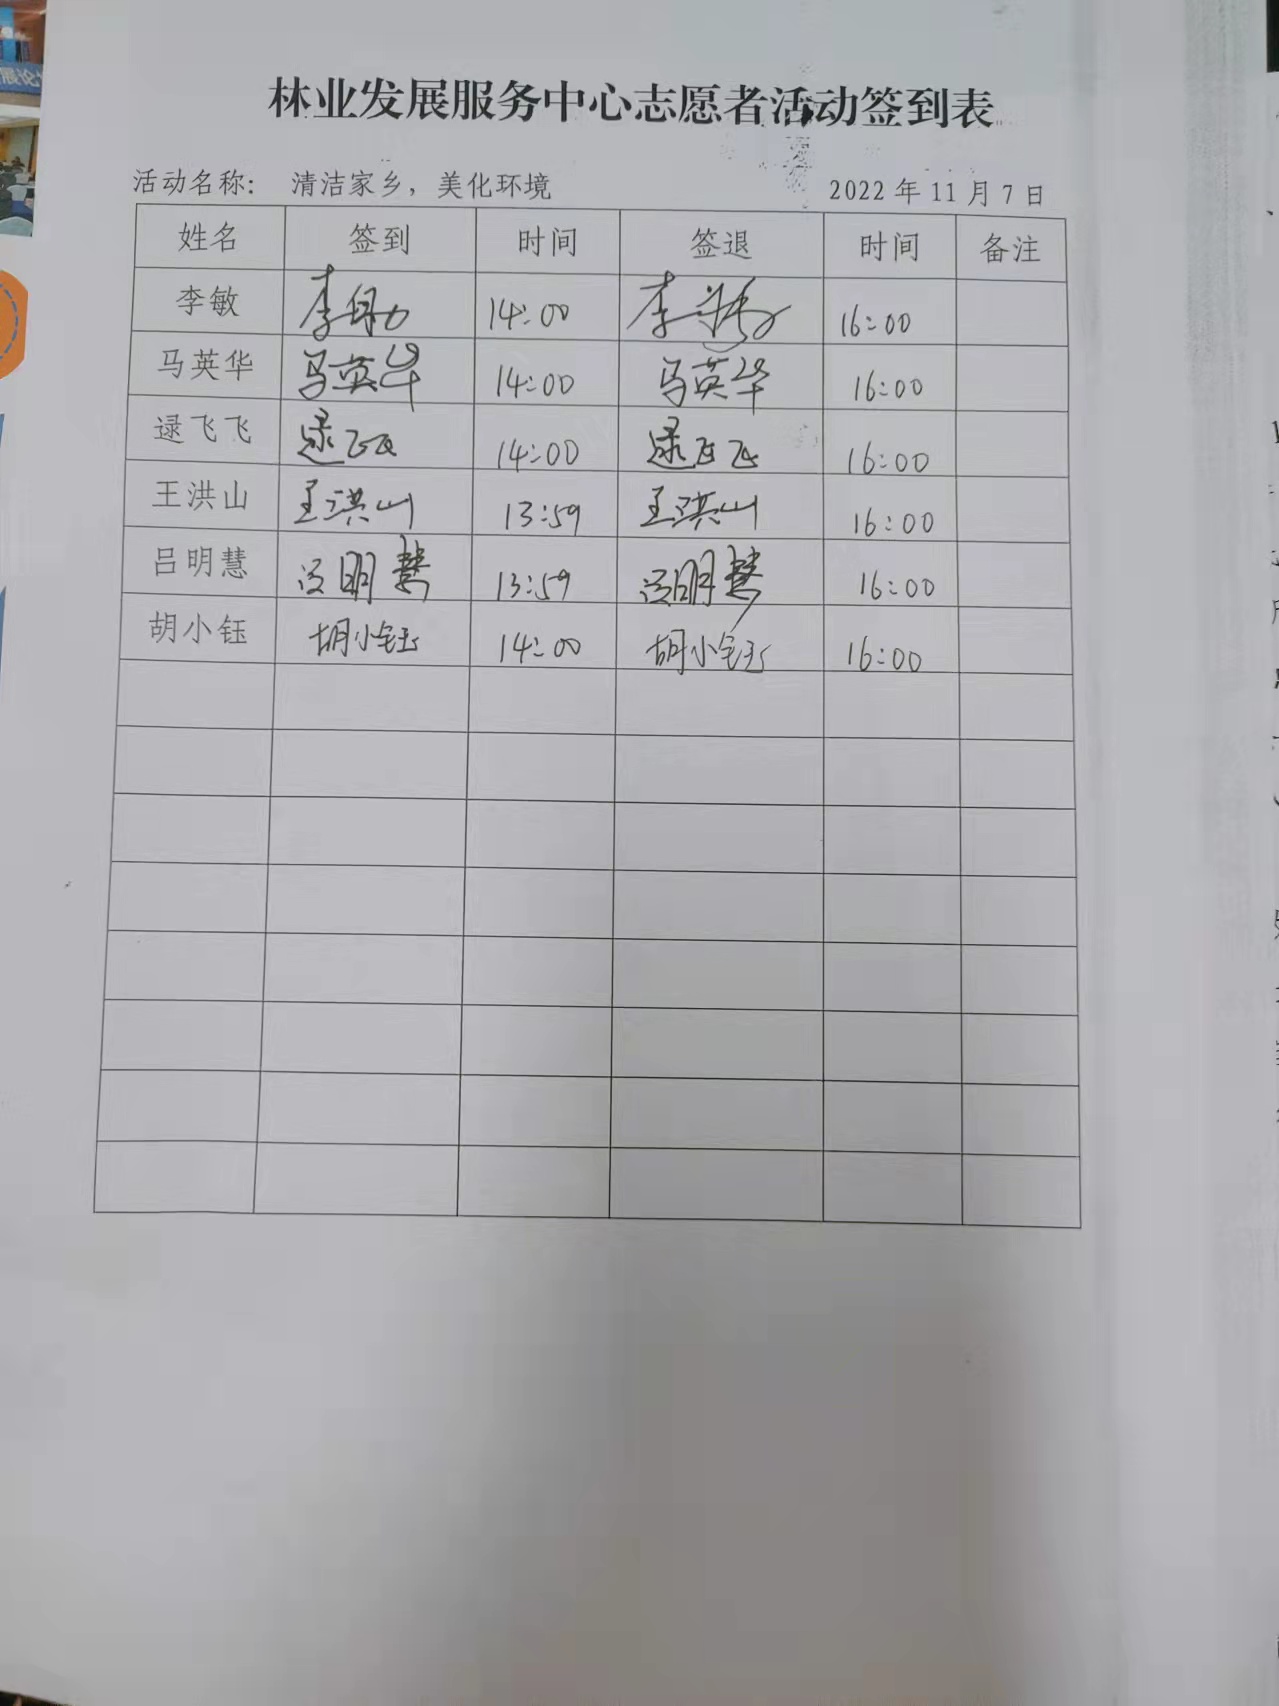 林业发展服务中心志愿者活动签到表
活动名称: 清洁家乡，美化环境 2022年11月7日
姓名 签到 时间 签退 时间 备注
李敏 李敏 14:00 李敏 16:00
马英华 马英华 14:00 马英华 16:00
逯飞飞 逯飞飞 14:00 逯飞飞 16:00
王洪山 王洪山 13:59 王洪山 16:00
吕明慧 吕明慧 13:59 吕明慧 16:00
胡小钰 胡小钰 14:00 胡小钰 16:00